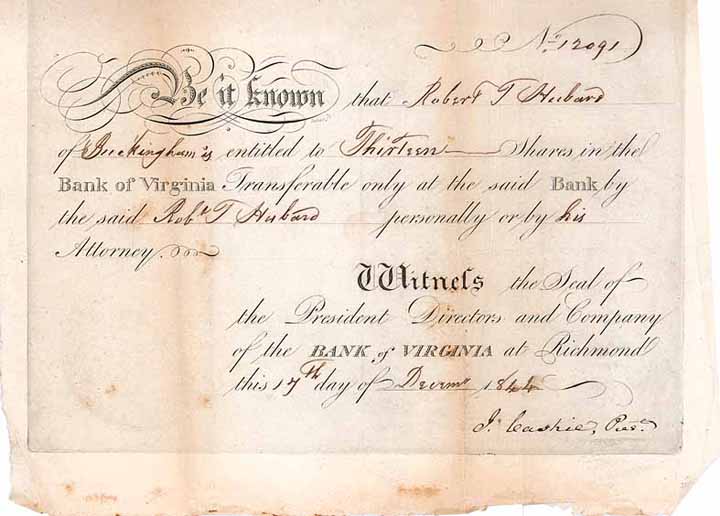 No. 12091
Be it known that Robert T Hubard
of Buckingham is entitled to Thirteen Shares in the
Bank of Virginia Transferable only at the said Bank by
the said Robt T Hubard personally or by his
Attorney.
Witneſs the Seal of
the President Directors and Company
of the BANK of VIRGINIA at Richmond
this 17th day of Decemr 1844
Js. Caskie, Prest.